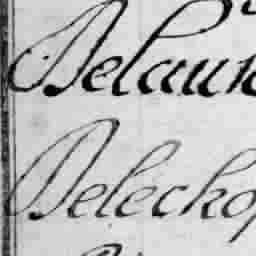 Belaun
Delecko